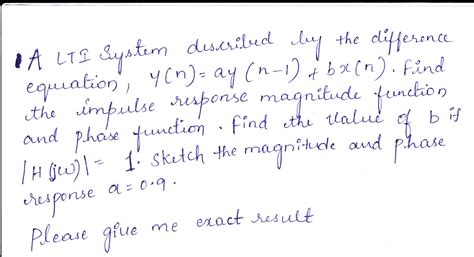 1 A LTI System described by the difference
equation, y(n) = ay (n-1) + bx(n). Find
the impulse response magnitude function
and phase function. Find the value of b if
|H(jω)| = 1. Sketch the magnitude and phase
response a = 0.9.
Please give me exact result